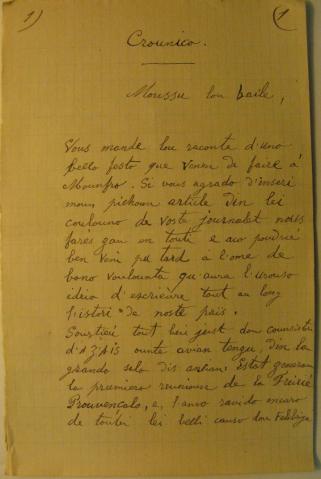 1)
(1
Crounico.
Moussu lou baile,
Vous mande lou raconte d'uno
bello festo que venen de faire à
Mounpró. Si vous agrado d'inseri
moun pichoun article din lei
coulouno de voste journalet nous
fares gau en toute e aco poudrié
ben veni pu tard à l'ome de
bono voulounta qu'aura l'urouso
idèio d'escrieure tout au long
l'istori de noste païs.
Sourtiei tout beu just dou
d'AZAÏS ounte avian tengu, din la
grando salo dis Estat generau
la premiero reunioun de la
Prouvençalo, e, l'amo ravido encaro
de toutei lei belli causo dou Felibrige